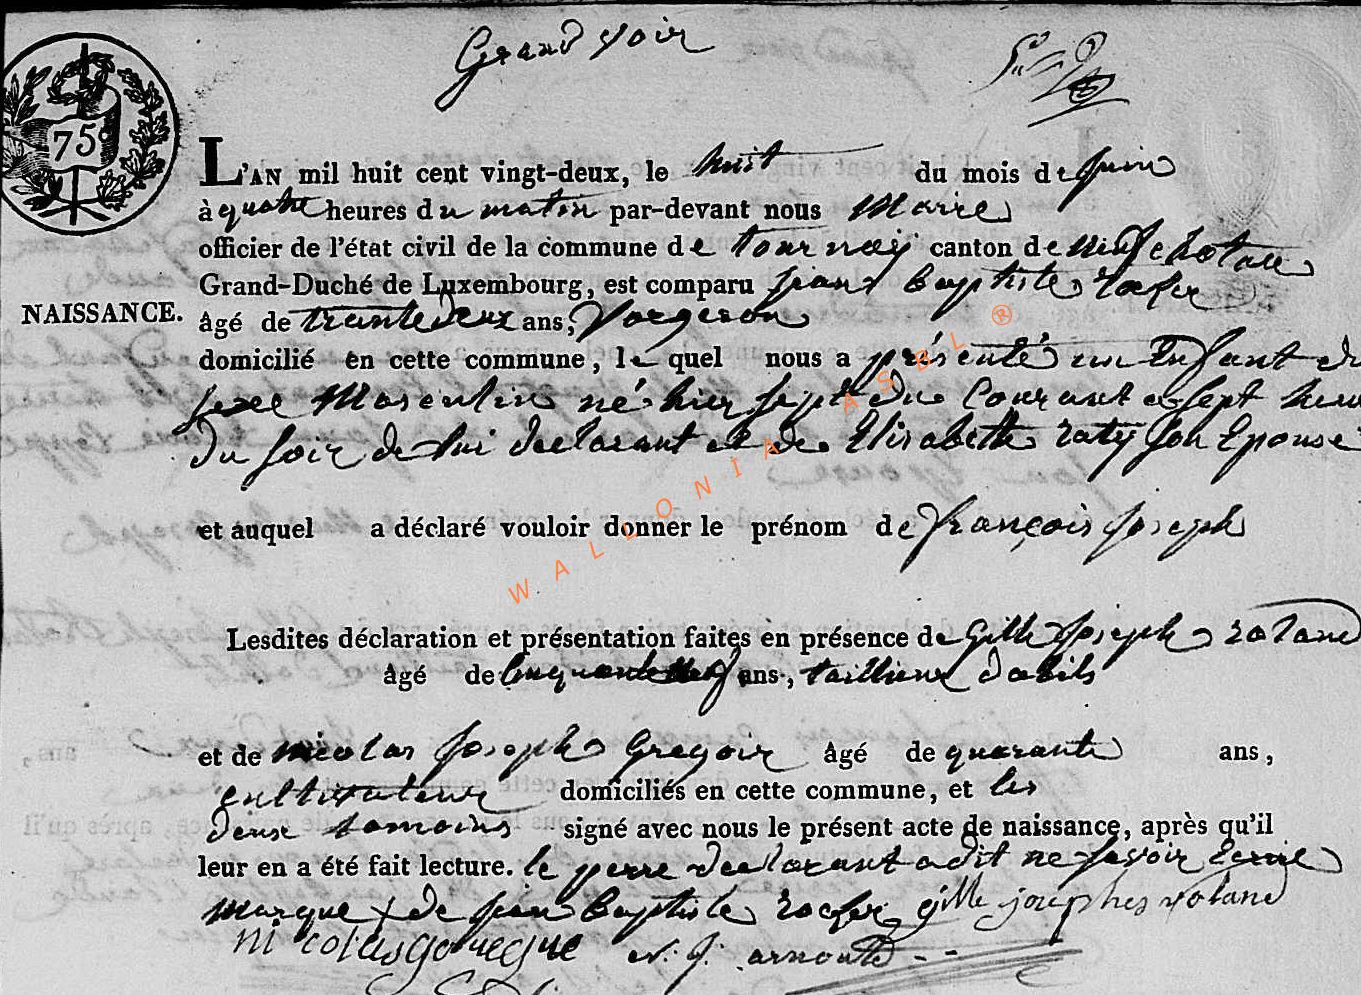 Grand voir
75c
L'AN mil huit cent vingt-deux, le huit du mois de Juin
à quatre heures du matin par-devant nous Maire
officier de l'état civil de la commune de tournay canton de neufchotau
Grand-Duché de Luxembourg, est comparu jean Baptiste
NAISSANCE.
âgé de trente deux ans,
domicilié en cette commune, le quel nous a présenté un Enfant du
sexe Masculin né hier sept du Courant a sept heur
Du soir de lui declarant et de Elisabeth raty son Epouse
et auquel a déclaré vouloir donner le prénom de françois joseph
WALLONIA ASBL ®
Lesdites déclaration et présentation faites en présence de Gille joseph roland
âgé de ans, tailleur dabits
et de nicolas joseph Gregoir âgé de quarante ans,
cultivateur domiciliés en cette commune, et les
deux temoins signé avec nous le présent acte de naissance, après qu'il
leur en a été fait lecture. le perre declarant a dit ne savoir Ecrire
marque de jean Baptiste gille josephes roland
nicolas n. j. arnould